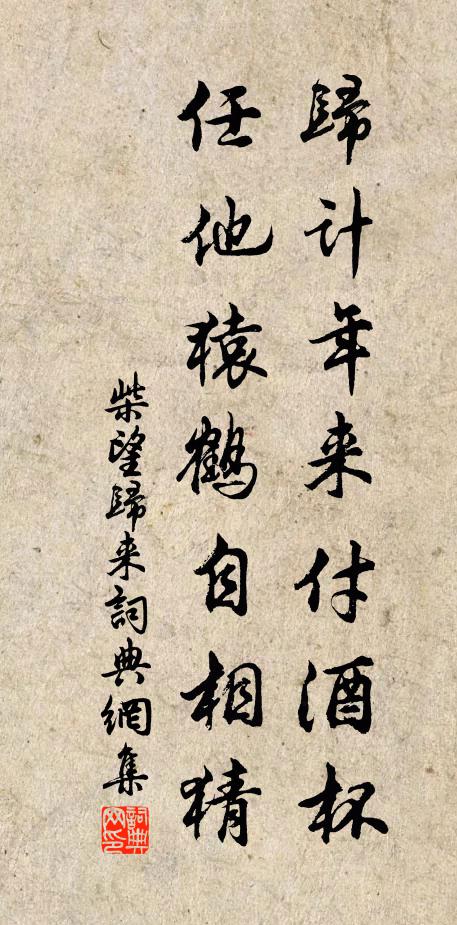 歸計年来付酒杯
任他猿鶴自相猜
柴望歸来詞典網集
詞典网印